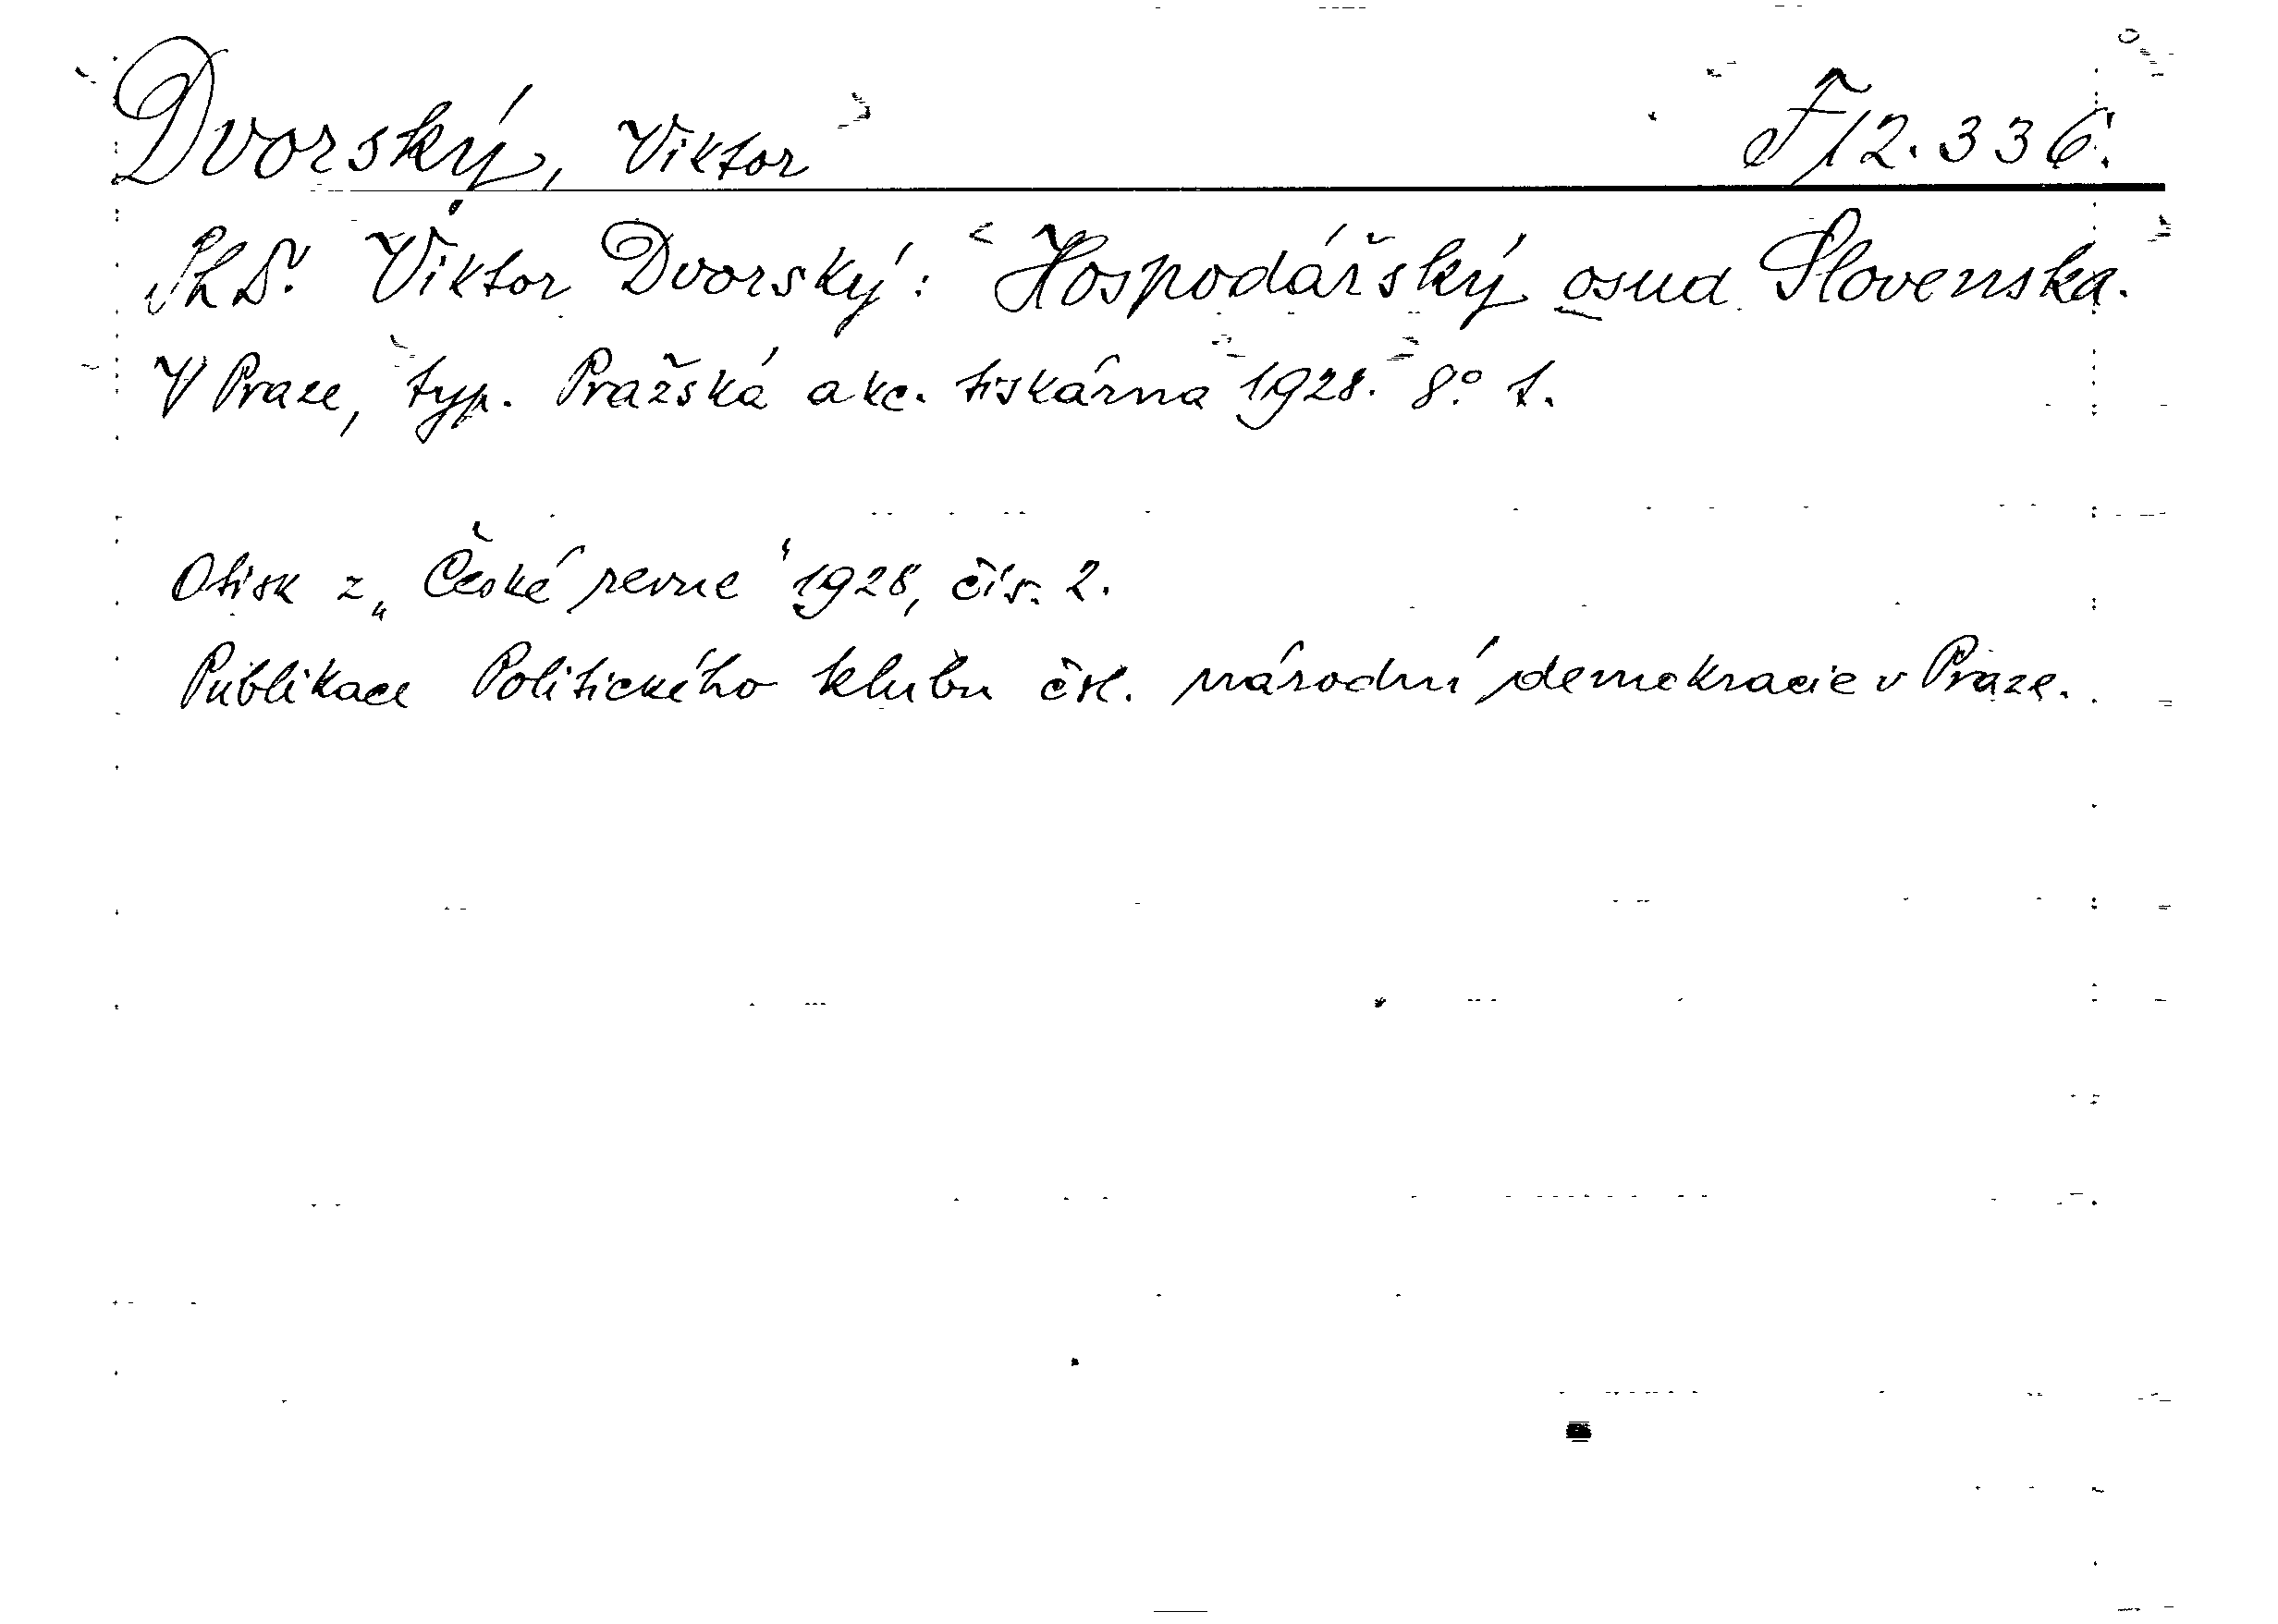 Dvorský, Viktor F 12.336.
PhDr. Viktor Dvorský: Hospodářský osud Slovenska.
V Praze, typ. Pražská akc. tiskárna 1928. 8° 1.
Otisk z „České revue" 1928, čís. 2.
Publikace Politického klubu čsl. národní demokracie v Praze.